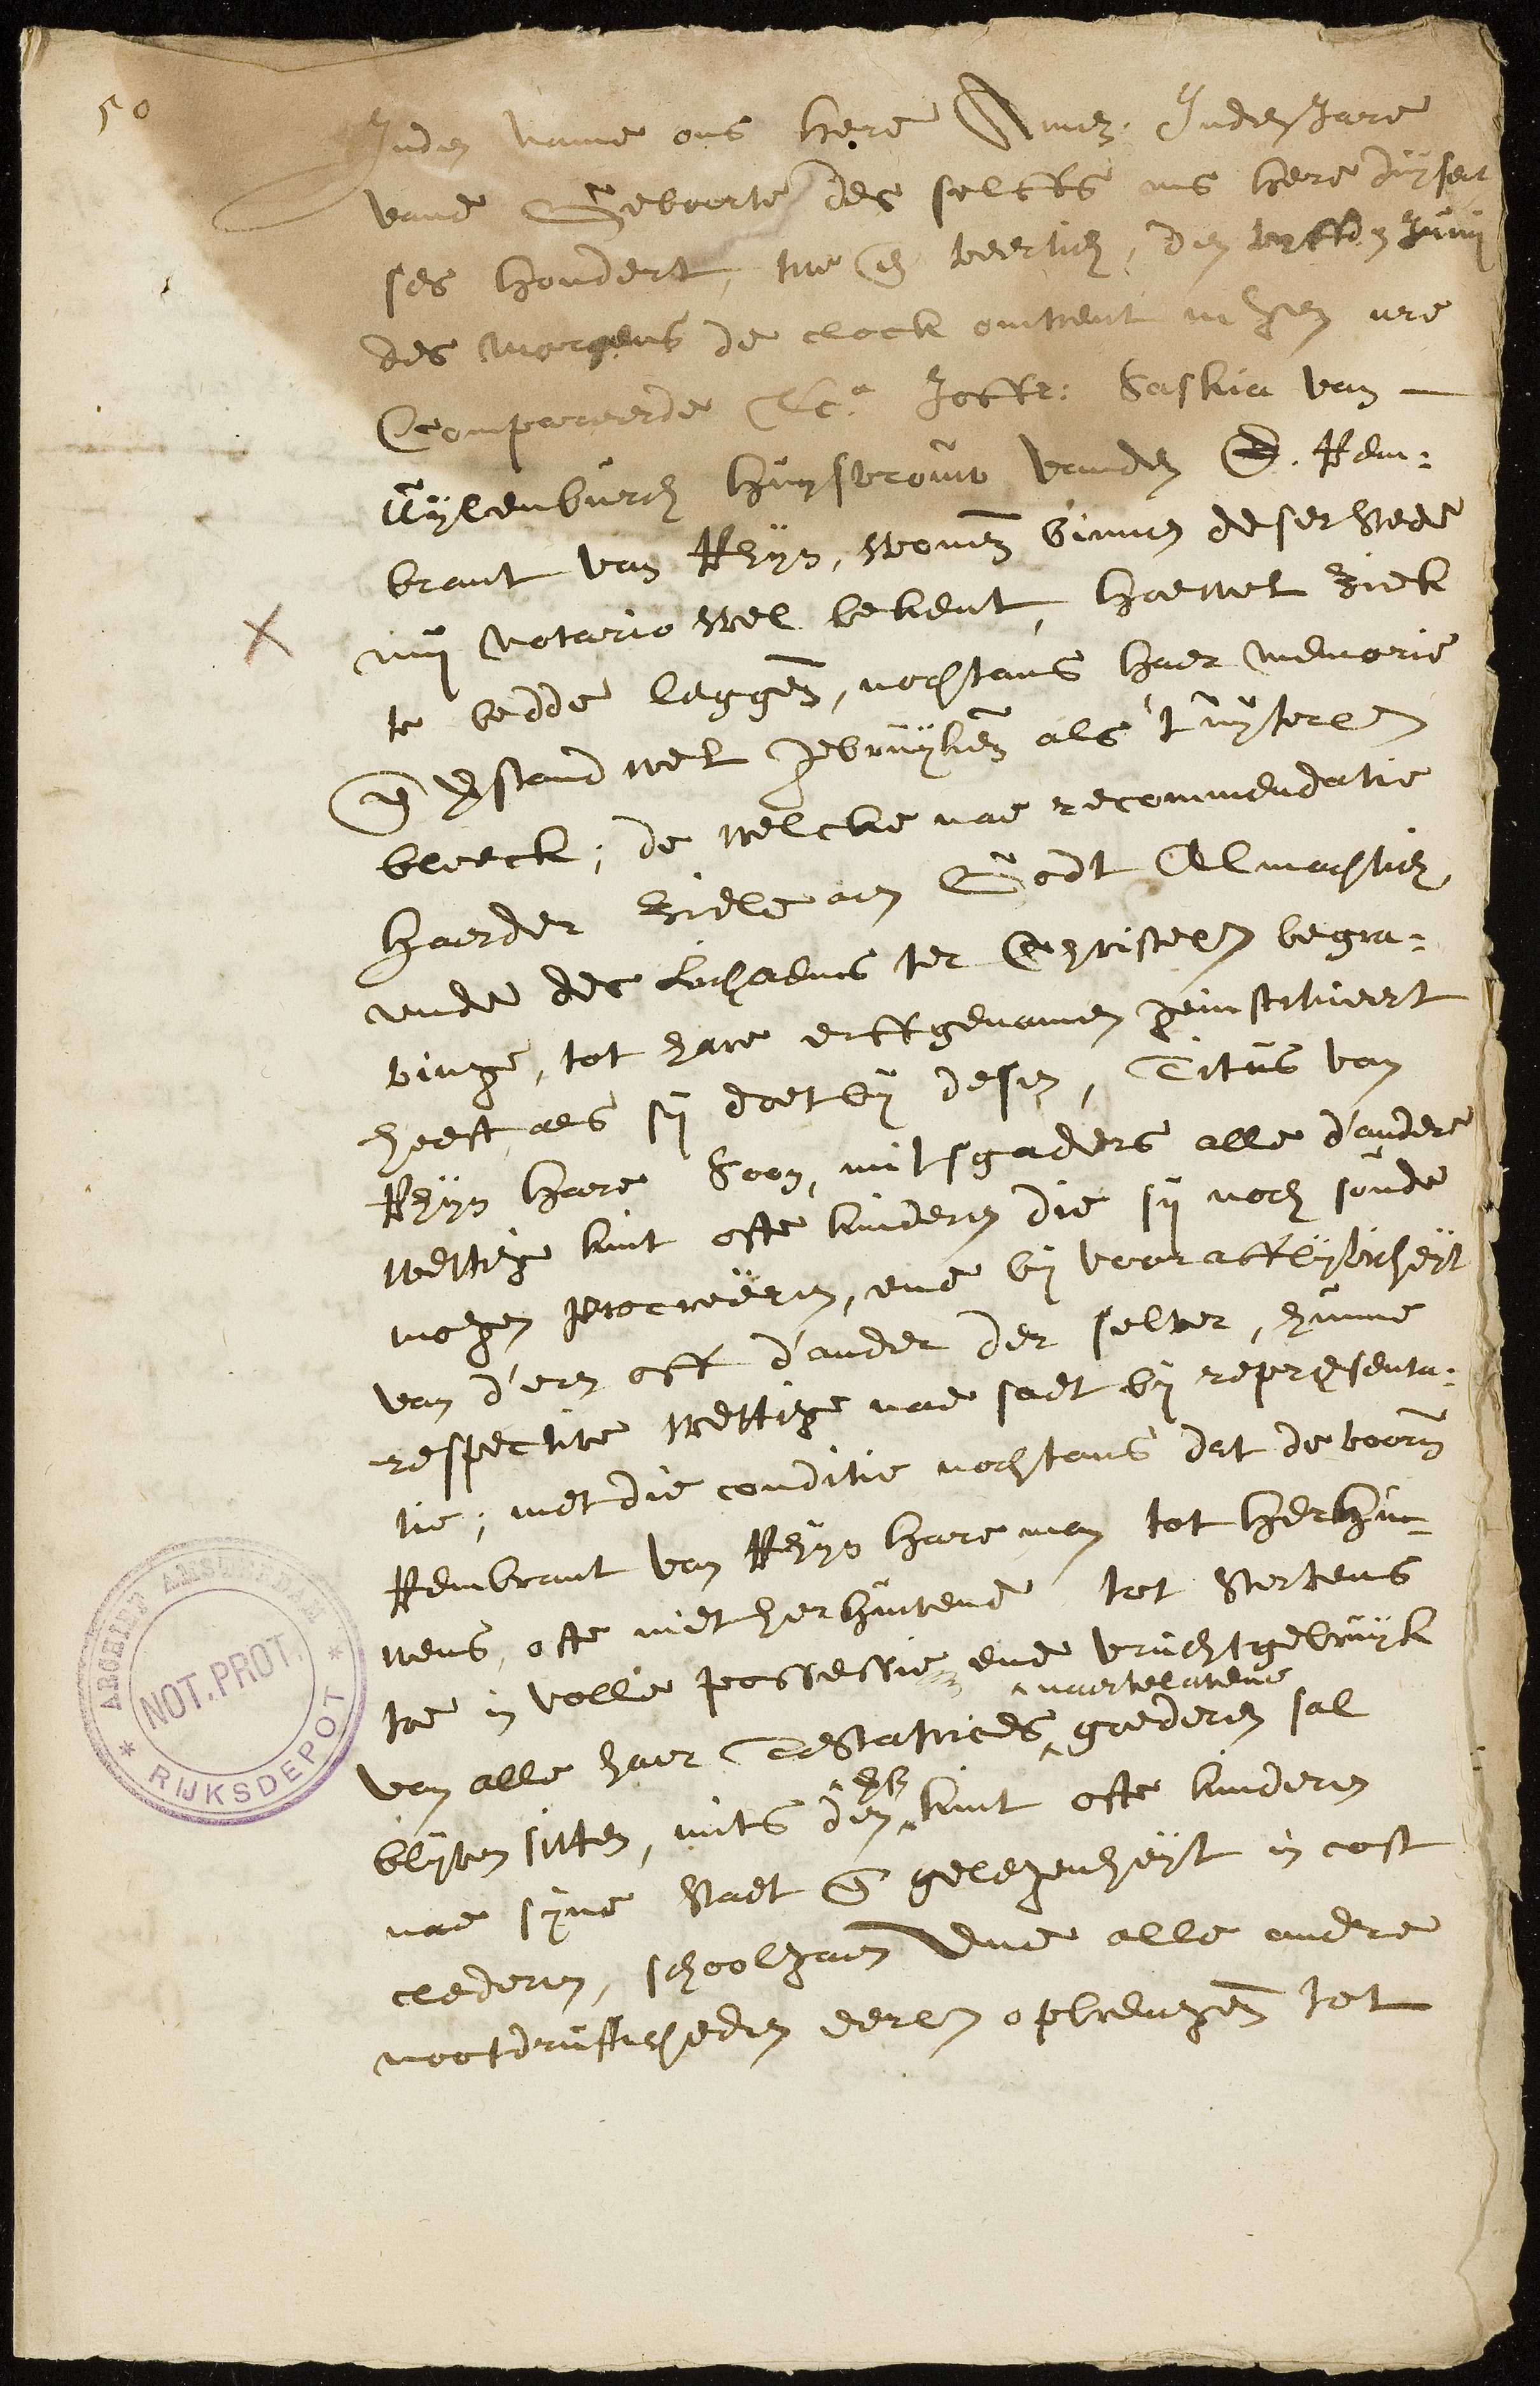 50
Inden name ons here Amen. Inden Jare
vande Geboorte des selffs ons here duysent
ses hondert, twe en veertich, den vyffden Junij
des morgens de clock omtrent negen ure
Compareerde Etca. Joffr: Saskia van
Uylenburch huysvrouw vanden E. Rem:
brant van Rhyn, wonen binnen deser stede
mij notario wel bekent, hoewel ziek
te bedde leggen, nochtans haer memorie
en verstand wel gebruyken als 't uyterlyc
bleeck; de welcke nae recommendatie
haerder Ziele aen Godt Almachtich
ende des Lichaems ter Christelyc begra:
vinge, tot hare erffgenamen geinstitueert
heeft, als sij doet bij desen, Titus van
Rhyn hare Soon, mitsgaders alle d'andere
wettige kint ofte kinderen die sij noch soude
mogen procreeren, ende bij vooraefflyvicheyt
van d'een off d'ander der selver, hunne
respective wettige nae saet bij representa:
tie; met die conditie nochtans dat de voorn
Rembrant van Rhyn hare man tot herhu-
wens, ofte niet herhuwende tot stervens
toe in volle possessie ende vruchtgebruyk
van alle haer Testatrices naertelatene goederen sal
blyven sitten, mits den kint ofte kinderen
nae syne staet en gelegenheyt in cost
clederen, schoolgaen ende alle andre
nootdruftichheden eerlyc opbrengen tot
ARCHIEF AMSTERDAM
NOT. PROT.
* RIJKSDEPOT *